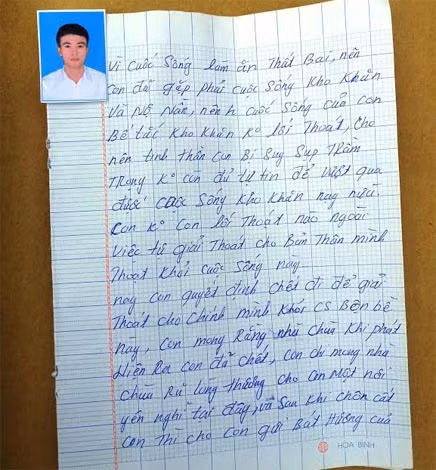 Vì Cuộc Sống làm ăn Thất Bại, nên
con đã gặp phải cuộc Sống Khó Khăn
Và Nợ Nần, nên cuộc Sống của con
Bế tắc Khó Khăn Ko lối Thoát, Cho
nên tinh thần Con Bị Suy Sụp Trầm
Trọng Ko còn đủ tự tin để vượt qua
được cuộc Sống Khó Khăn này nữa.
Con Ko Còn lối Thoát nào ngoài
Việc tự giải Thoát cho Bản Thân mình
Thoát Khỏi cuộc Sống này
nay con quyết định chết đi để giải
Thoát cho Chính mình Khỏi CS Bộn bề
này, Con mong Rằng nhà Chùa Khi phát
Hiện Ra con đã chết, con chỉ mong nhà
chùa Rủ lòng thương cho con Một nơi
yên nghỉ tại đây, và Sau Khi chôn cất
con Thì cho con gửi Bát Hương của
HOA BINH